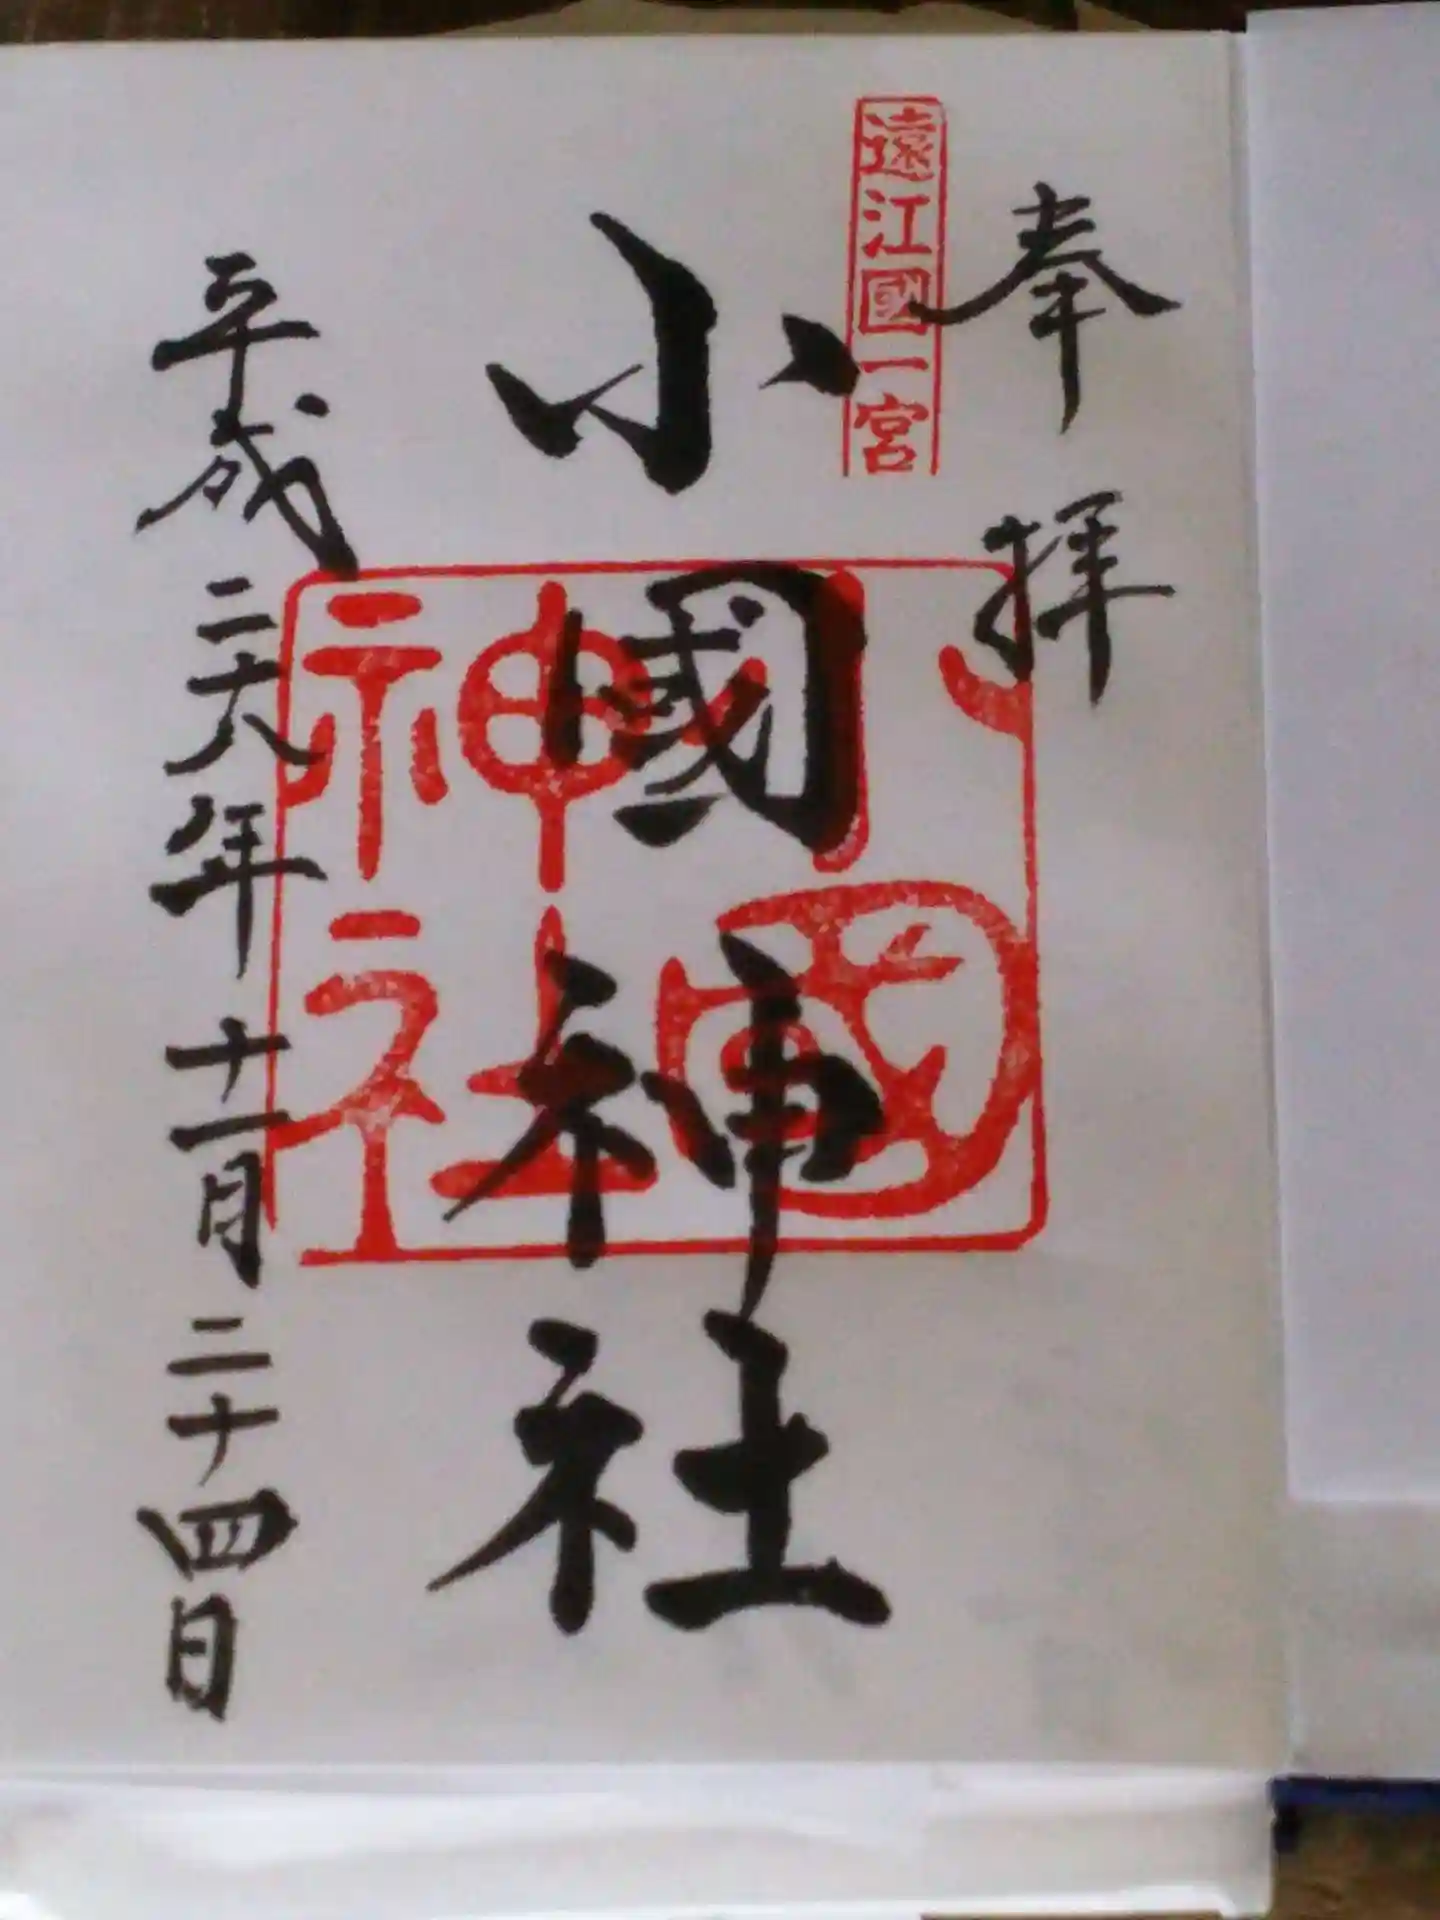 奉拝
遠江國一宮
小國神社
小國神社
平成二十八年十一月二十四日